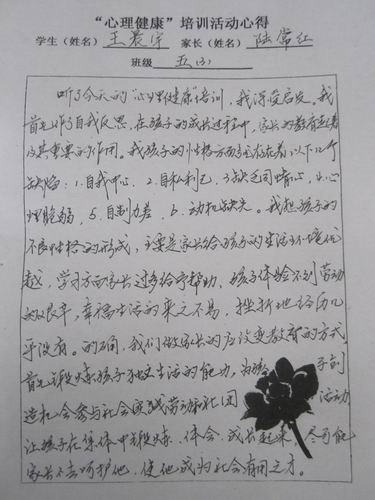 “心理健康”培训活动心得
学生（姓名） 王晨宇 家长（姓名） 陆常红
班级 五(3)
听了今天的“心理健康”培训，我深受启发，我
首先作了自我反思，在孩子的成长过程中，家长的教育起着
及其重要的作用。我孩子的性格方面还存在着以下几个
缺陷：1.自我中心、2.自私利己、3缺乏同情心、4.心
理脆弱、5.自制力差、6.动机缺失。我想孩子的
不良性格的形成，主要是家长给孩子的生活环境优
越，学习方面家长过多给予帮助，孩子体验不到劳动
的艰辛，幸福生活的来之不易，挫折地经历几
乎没有。的确，我们做家长的应改变教育的方式
首先锻炼孩子独立生活的能力，为孩子创
造机会参与社会实践劳动和社团活动
让孩子在集体中锻炼、体会、成长起来，尽可能
家长不去呵护他，使他成为社会有用之才。